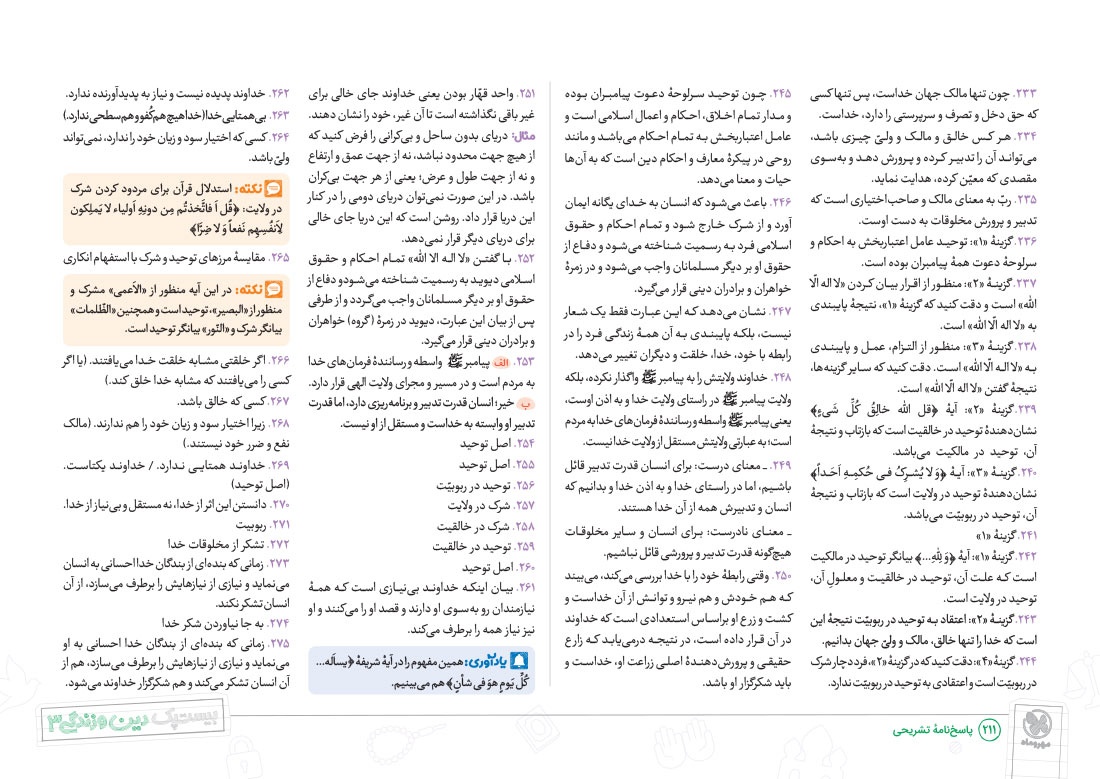 ۲۳۳. چون تنها مالک جهان خداست، پس تنها کسی
که حق دخل و تصرف و سرپرستی را دارد، خداست.
۲۳۴. هر کس خالق و مالک و ولیّ چیزی باشد،
می‌تواند آن را تدبیر کرده و پرورش دهد و به‌سوی
مقصدی که معیّن کرده، هدایت نماید.
۲۳۵. ربّ به معنای مالک و صاحب‌اختیاری است که
تدبیر و پرورش مخلوقات به دست اوست.
۲۳۶. گزینهٔ «۱»: توحید عامل اعتباربخش به احکام و
سرلوحهٔ دعوت همهٔ پیامبران بوده است.
۲۳۷. گزینهٔ «۲»: منظور از اقرار بیان کردن «لا اله الّا
الله» است و دقت کنید که گزینهٔ «۱»، نتیجهٔ پایبندی
به «لا اله الّا الله» است.
۲۳۸. گزینهٔ «۳»: منظور از التزام، عمل و پایبندی
به «لا اله الّا الله» است. دقت کنید که سایر گزینه‌ها،
نتیجهٔ گفتن «لا اله الّا الله» است.
۲۳۹. گزینهٔ «۲»: آیهٔ ﴿قل الله خالِقُ کُلِّ شَیءٍ﴾
نشان‌دهندهٔ توحید در خالقیت است که بازتاب و نتیجهٔ
آن، توحید در مالکیت می‌باشد.
۲۴۰. گزینهٔ «۳»: آیهٔ ﴿وَ لا یُشرِکُ فی حُکمِهِ اَحَداً﴾
نشان‌دهندهٔ توحید در ولایت است که بازتاب و نتیجهٔ
آن، توحید در ربوبیّت می‌باشد.
۲۴۱. گزینهٔ «۱»
۲۴۲. گزینهٔ «۱»: آیهٔ ﴿وَ لِلّهِ...﴾ بیانگر توحید در مالکیت
است که علت آن، توحید در خالقیت و معلولِ آن،
توحید در ولایت است.
۲۴۳. گزینهٔ «۲»: اعتقاد به توحید در ربوبیّت نتیجهٔ این
است که خدا را تنها خالق، مالک و ولیّ جهان بدانیم.
۲۴۴. گزینهٔ «۴»: دقت کنید که در گزینهٔ «۲»، فرد دچار شرک
در ربوبیّت است و اعتقادی به توحید در ربوبیّت ندارد.
۲۴۵. چون توحید سرلوحهٔ دعوت پیامبران بوده
و مدار تمام اخلاق، احکام و اعمال اسلامی است و
عامل اعتباربخش به تمام احکام می‌باشد و مانند
روحی در پیکرهٔ معارف و احکام دین است که به آن‌ها
حیات و معنا می‌دهد.
۲۴۶. باعث می‌شود که انسان به خدای یگانه ایمان
آورد و از شرک خارج شود و تمام احکام و حقوق
اسلامی فرد به رسمیت شناخته می‌شود و دفاع از
حقوق او بر دیگر مسلمانان واجب می‌شود و در زمرهٔ
خواهران و برادران دینی قرار می‌گیرد.
۲۴۷. نشان می‌دهد که این عبارت فقط یک شعار
نیست، بلکه پایبندی به آن همهٔ زندگی فرد را در
رابطه با خود، خدا، خلقت و دیگران تغییر می‌دهد.
۲۴۸. خداوند ولایتش را به پیامبر ﷺ واگذار نکرده، بلکه
ولایت پیامبر ﷺ در راستای ولایت خدا و به اذن اوست،
یعنی پیامبر ﷺ واسطه و رسانندهٔ فرمان‌های خدا به مردم
است؛ به عبارتی ولایتش مستقل از ولایت خدا نیست.
۲۴۹. ـ معنای درست: برای انسان قدرت تدبیر قائل
باشیم، اما در راستای خدا و به اذن خدا و بدانیم که
انسان و تدبیرش همه از آن خدا هستند.
ـ معنای نادرست: برای انسان و سایر مخلوقات
هیچ‌گونه قدرت تدبیر و پرورشی قائل نباشیم.
۲۵۰. وقتی رابطهٔ خود را با خدا بررسی می‌کند، می‌بیند
که هم خودش و هم نیرو و توانش از آن خداست و
کشت و زرع او براساس استعدادی است که خداوند
در آن قرار داده است، در نتیجه درمی‌یابد که زارع
حقیقی و پرورش‌دهندهٔ اصلی زراعت او، خداست و
باید شکرگزار او باشد.
۲۵۱. واحد قهّار بودن یعنی خداوند جای خالی برای
غیر باقی نگذاشته است تا آن غیر، خود را نشان دهند.
مثال: دریای بدون ساحل و بی‌کرانی را فرض کنید که
از هیچ جهت محدود نباشد، نه از جهت عمق و ارتفاع
و نه از جهت طول و عرض؛ یعنی از هر جهت بی‌کران
باشد. در این صورت نمی‌توان دریای دومی را در کنار
این دریا قرار داد. روشن است که این دریا جای خالی
برای دریای دیگر قرار نمی‌دهد.
۲۵۲. با گفتن «لا اله الا الله» تمام احکام و حقوق
اسلامی دیوید به رسمیت شناخته می‌شود و دفاع از
حقوق او بر دیگر مسلمانان واجب می‌گردد و از طرفی
پس از بیان این عبارت، دیوید در زمرهٔ (گروه) خواهران
و برادران دینی قرار می‌گیرد.
۲۵۳. الف پیامبر ﷺ واسطه و رسانندهٔ فرمان‌های خدا
به مردم است و در مسیر و مجرای ولایت الهی قرار دارد.
ب خیر؛ انسان قدرت تدبیر و برنامه‌ریزی دارد، اما قدرت
تدبیر او وابسته به خداست و مستقل از او نیست.
۲۵۴. اصل توحید
۲۵۵. اصل توحید
۲۵۶. توحید در ربوبیّت
۲۵۷. شرک در ولایت
۲۵۸. شرک در خالقیت
۲۵۹. توحید در خالقیت
۲۶۰. اصل توحید
۲۶۱. بیان اینکه خداوند بی‌نیازی است که همهٔ
نیازمندان رو به‌سوی او دارند و قصد او را می‌کنند و او
نیز نیاز همه را برطرف می‌کند.
یادآوری: همین مفهوم را در آیهٔ شریفهٔ ﴿یسأله...
کُلِّ یَومٍ هوَ فی شأنٍ﴾ هم می‌بینیم.
۲۶۲. خداوند پدیده نیست و نیاز به پدیدآورنده ندارد.
۲۶۳. بی‌همتایی خدا (خدا هیچ هم‌کُفو و هم‌سطحی ندارد.)
۲۶۴. کسی که اختیار سود و زیان خود را ندارد، نمی‌تواند
ولیّ باشد.
نکته: استدلال قرآن برای مردود کردن شرک
در ولایت: ﴿قُل اَ فَاتَّخَذتُم مِن دونِهِ اَولیاء لا یَملِکون
لِاَنفُسِهِم نَفعاً وَ لا ضرّاً﴾
۲۶۵. مقایسهٔ مرزهای توحید و شرک با استفهام انکاری
نکته: در این آیه منظور از «الأعمی» مشرک و
منظور از «البصیر»، توحید است و همچنین «الظّلمات»
بیانگر شرک و «النّور» بیانگر توحید است.
۲۶۶. اگر خلقتی مشابه خلقت خدا می‌یافتند. (یا اگر
کسی را می‌یافتند که مشابه خدا خلق کند.)
۲۶۷. کسی که خالق باشد.
۲۶۸. زیرا اختیار سود و زیان خود را هم ندارند. (مالک
نفع و ضرر خود نیستند.)
۲۶۹. خداوند همتایی ندارد. / خداوند یکتاست.
(اصل توحید)
۲۷۰. دانستن این اثر از خدا، نه مستقل و بی‌نیاز از خدا.
۲۷۱. ربوبیت
۲۷۲. تشکر از مخلوقات خدا
۲۷۳. زمانی که بنده‌ای از بندگان خدا احسانی به انسان
می‌نماید و نیازی از نیازهایش را برطرف می‌سازد، از آن
انسان تشکر نکند.
۲۷۴. به جا نیاوردن شکر خدا
۲۷۵. زمانی که بنده‌ای از بندگان خدا احسانی به او
می‌نماید و نیازی از نیازهایش را برطرف می‌سازد، هم از
آن انسان تشکر می‌کند و هم شکرگزار خداوند می‌شود.
مهروماه
۲۱۱ پاسخ‌نامهٔ تشریحی
بیست‌پک دین و زندگی ۳